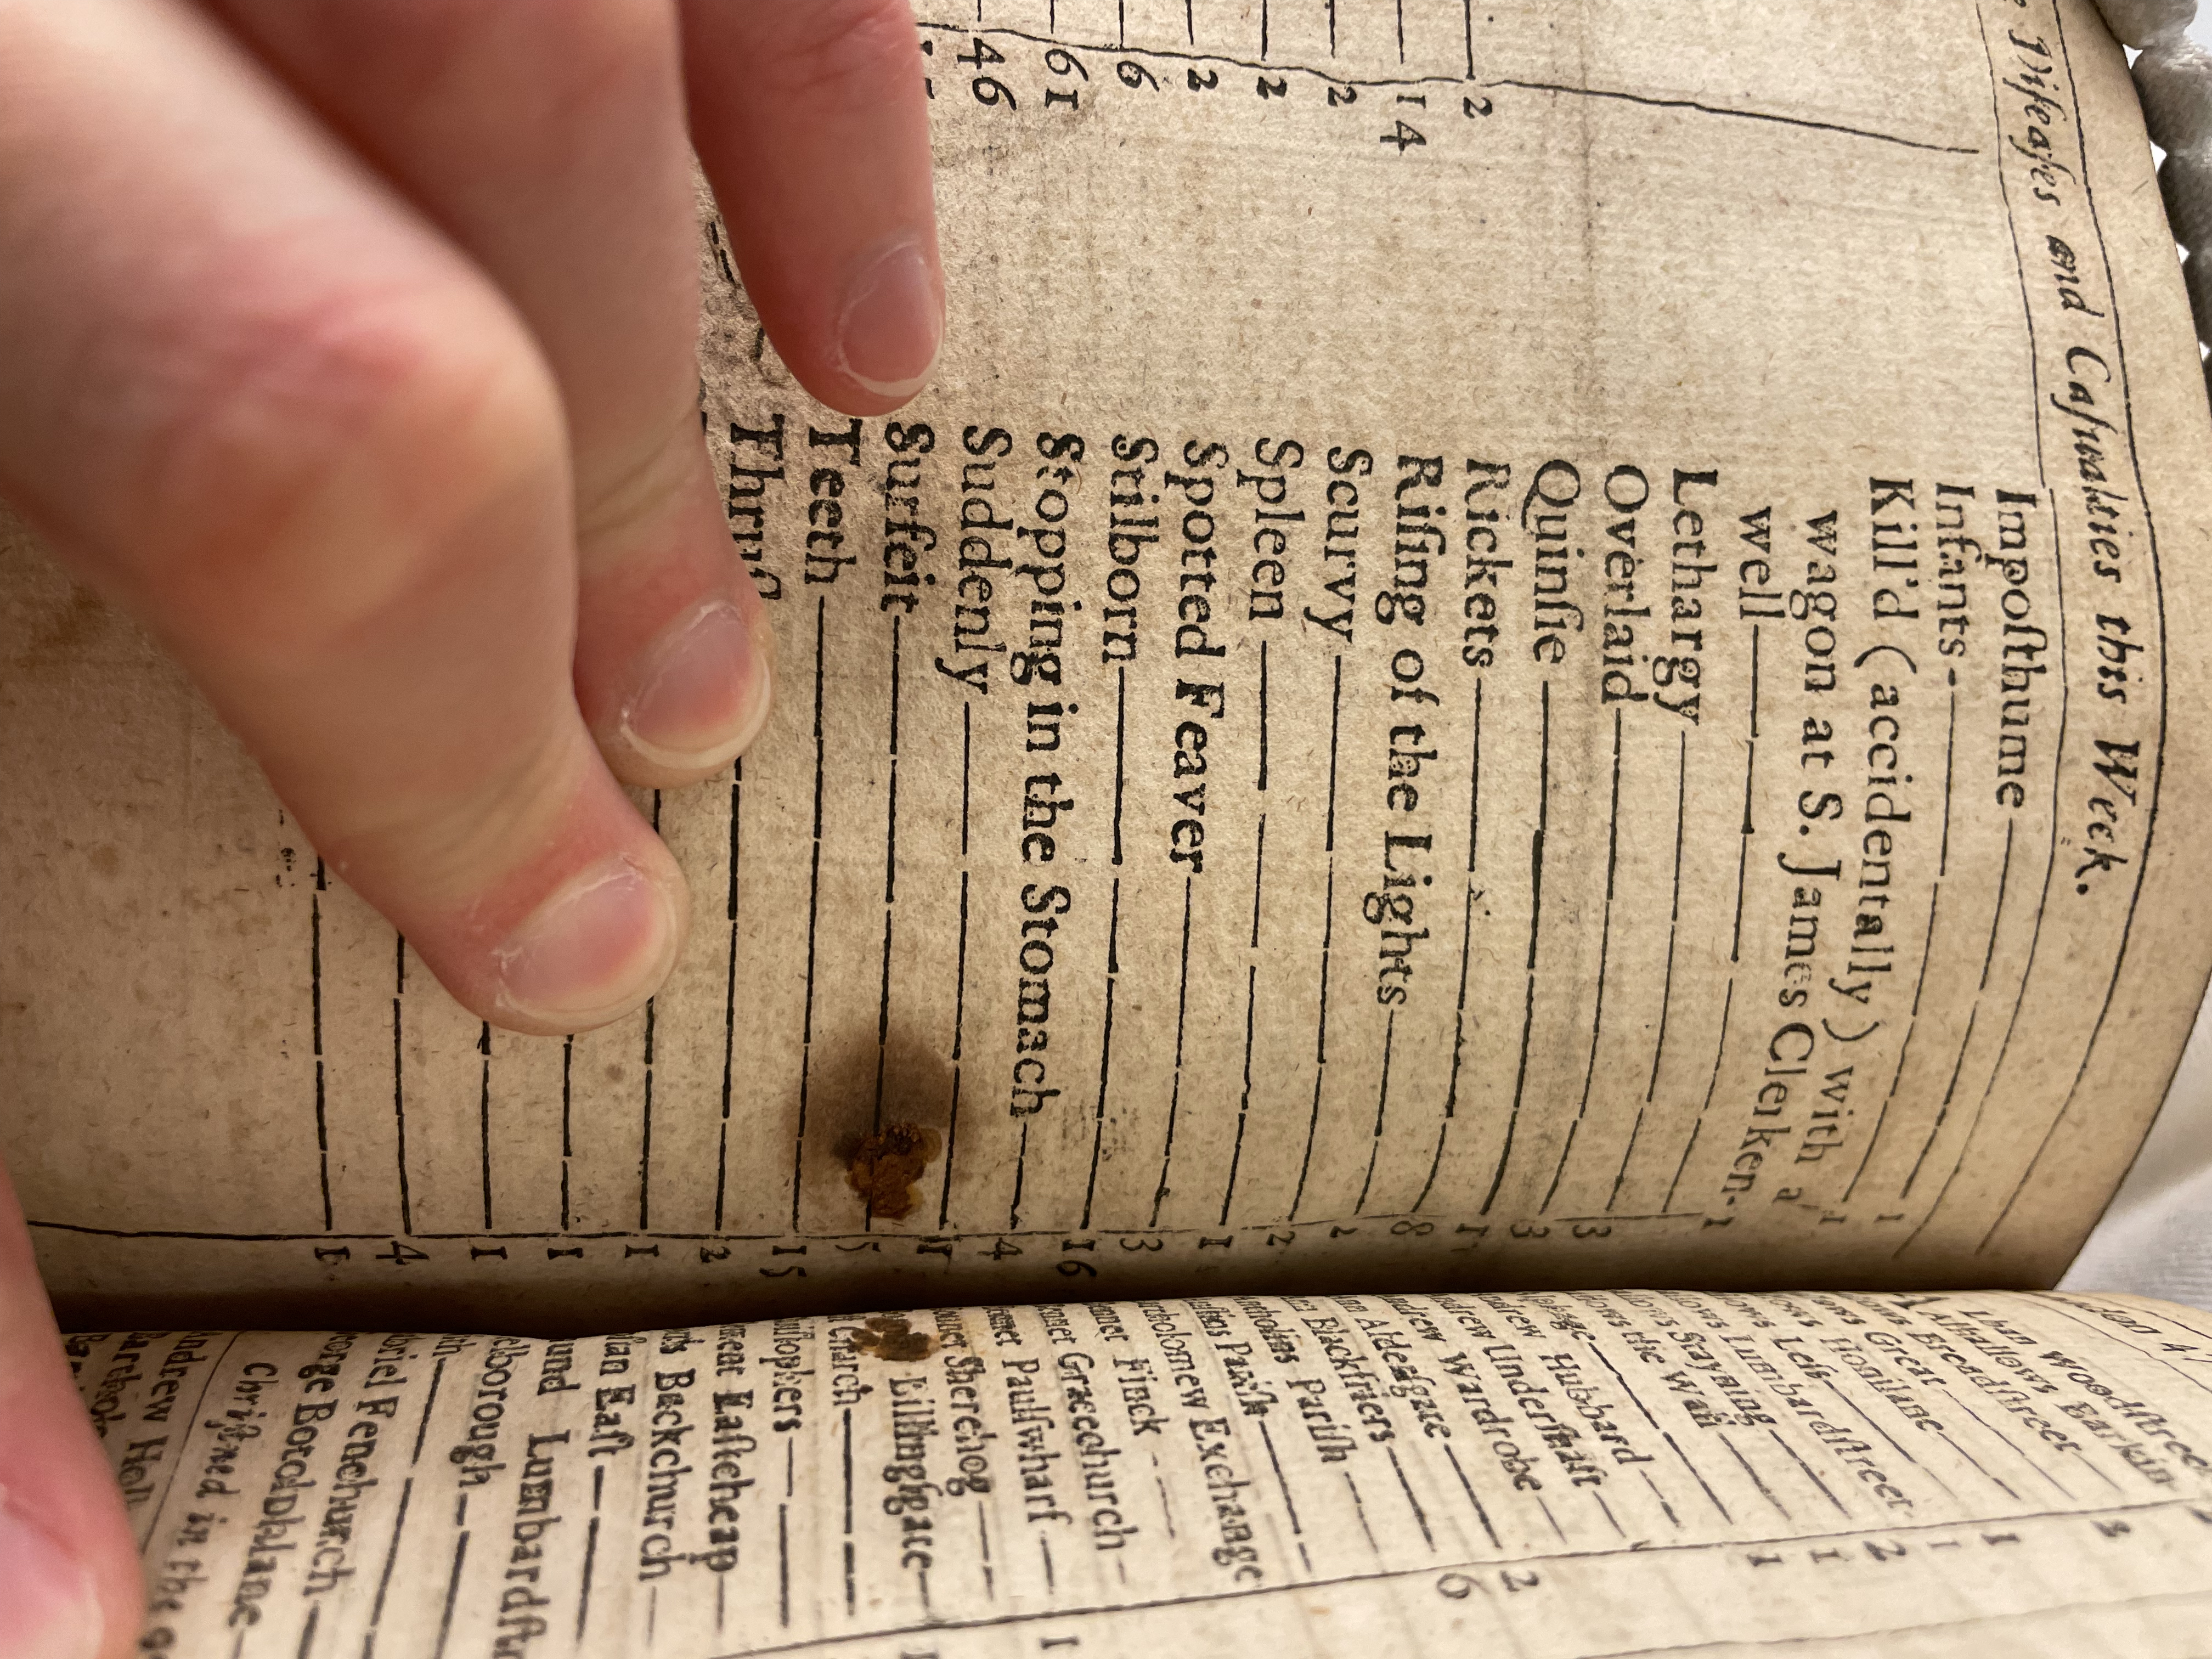 Diſeaſes and Caſualties this Week.
2
14
2
2
2
6
61
46
Impoſthume
Infants
Kill'd (accidentally) with a
wagon at S. James Clerken-
well 1
Lethargy 3
Overlaid 3
Quinſie 1
Rickets 8
Riſing of the Lights 2
Scurvy 2
Spleen 1
Spotted Feaver 3
Stilborn 16
Stopping in the Stomach 4
Suddenly 1
Surfeit 5
Teeth 15
2
1
1
1
4
1
Woodſtreet
Barkin
Breadſtreet
Great
Honilane
Leſs
Lumbardſtreet
Stayning
the Wall
Hubbard
Underſhaft
Wardrobe
Alderſgate
Blackfriers
Pariſh
Pariſh
Exchange
Finck
Gracechurch
Paulſwharf
Sherehog
Billingſgate
Church
Eaſtcheap
Backchurch
Eaſt
Lumbardſt
Fenchurch
Botolphlane
Chriſtned in the